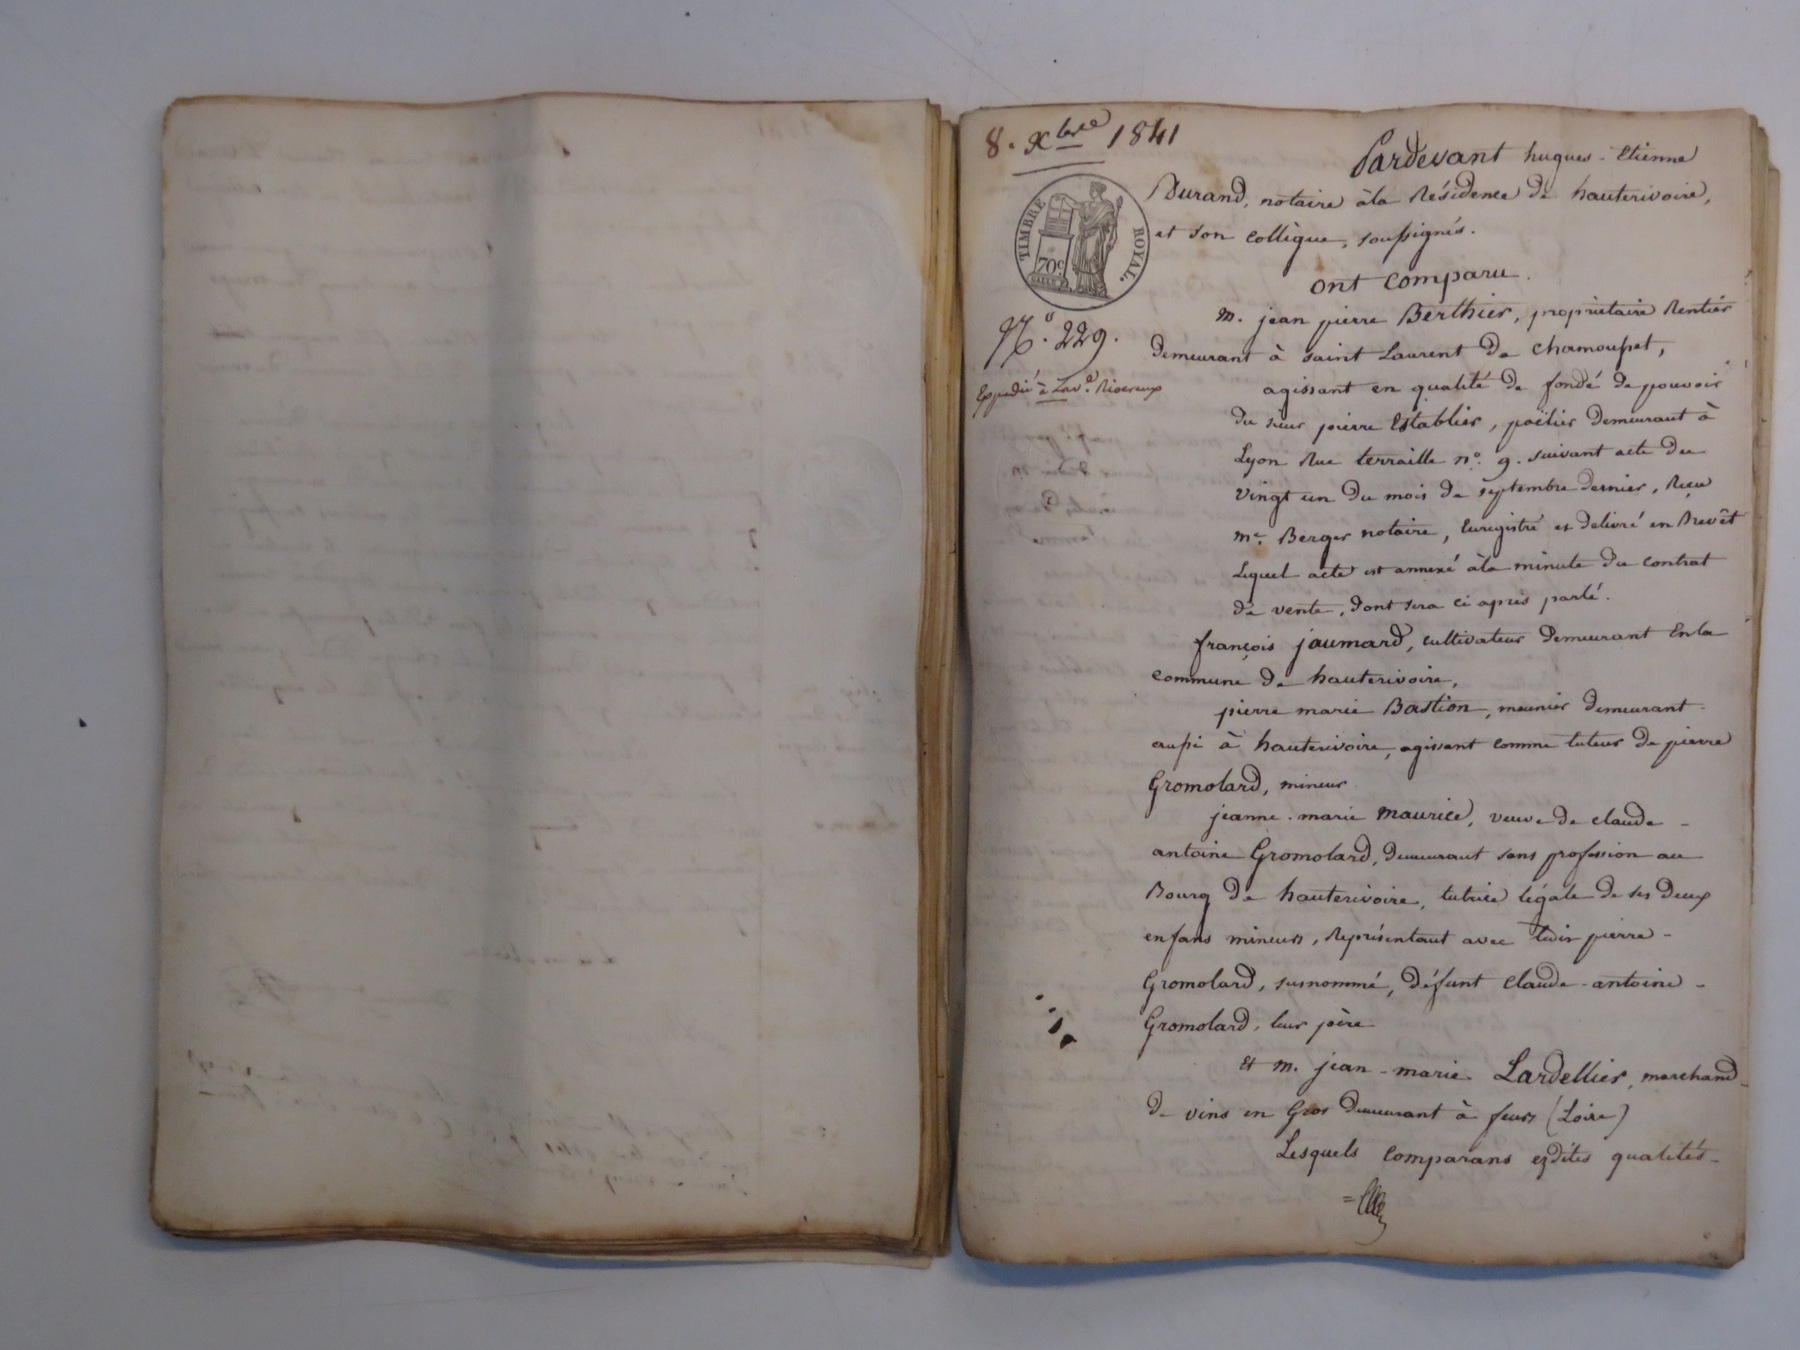 8. Xbre 1841
TIMBRE ROYAL.
70c
No. 229.
Expédié à
Pardevant hugues-Etienne
Durand, notaire àla Résidence de hauterivoire,
et son collègue, soussignés.
ont comparu.
m. jean pierre Berthier, propriétaire Rentier
demeurant à saint Laurent de chamousset,
agissant en qualité de fondé de pouvoir
du sieur pierre Establier, poëlier demeurant à
Lyon Rue terraille no. 9. suivant acte du
vingt un du mois de septembre dernier, Reçu
me. Berger notaire, Enregistré et délivré en Brevêt
Lequel acte est annexé àla minute du contrat
de vente, dont sera ci après parlé.
françois jaumard, cultivateur demeurant Enla
commune de hauterivoire,
pierre marie Bastion, meunier demeurant
aussi à hauterivoire, agissant comme tuteur de pierre
Gromolard, mineur
jeanne-marie maurice, veuve de claude-
antoine Gromolard, demeurant sans profession au
Bourg de hauterivoire, tutrice légale de ses deux
enfans mineurs, Représentant avec ledit pierre-
Gromolard, susnommé, défunt Claude-antoine-
Gromolard, leur père
Et m. jean-marie Lardellier, marchand
de vins en Gros demeurant à feurs (Loire)
Lesquels comparans ezdites qualités-